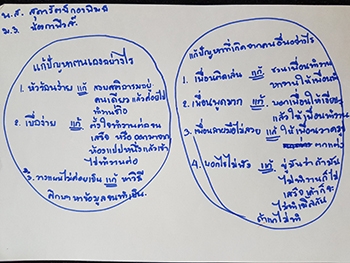 น.ส. สุภารัตน์
ม.3.
แก้ปัญหาตนเองอย่างไร
1. หัวร้อนง่าย แก้ สงบสติอารมณ์อยู่
คนเดียว แล้วค่อยไป
ทำงานต่อ
2. เบื่อง่าย แก้ ตั้งใจทำงานต่อจน
เสร็จ หรือ ออกมานอก
ห้องแปปหนึ่งแล้วเข้า
ไปทำงานต่อ
3. วางแผนไม่ค่อยเป็น แก้ หาวิธี
ศึกษาหาข้อมูลจนทำเป็น.
แก้ปัญหาที่เกิดจากคนอื่นอย่างไร
1. เพื่อนคิดเล่น แก้ ชวนเพื่อนทำงาน
หางานให้เพื่อนทำ
2. เพื่อนพูดมาก แก้ บอกเพื่อนให้เงียบ
แล้วให้เพื่อนทำงาน
3. เพื่อนลายมือไม่สวย แก้ ให้เพื่อนวาดรูป
ตกแต่ง
4. บอกไม่ฟัง แก้ ขู่มันว่าถ้ามัน
ไม่ทำงานก็ไม่
เสร็จ
ถ้าแกไม่ทำ